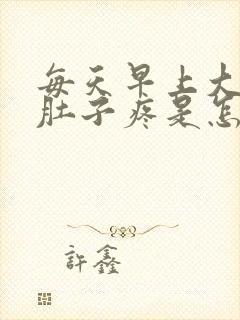 每天早上大
肚子疼是怎
許鑫